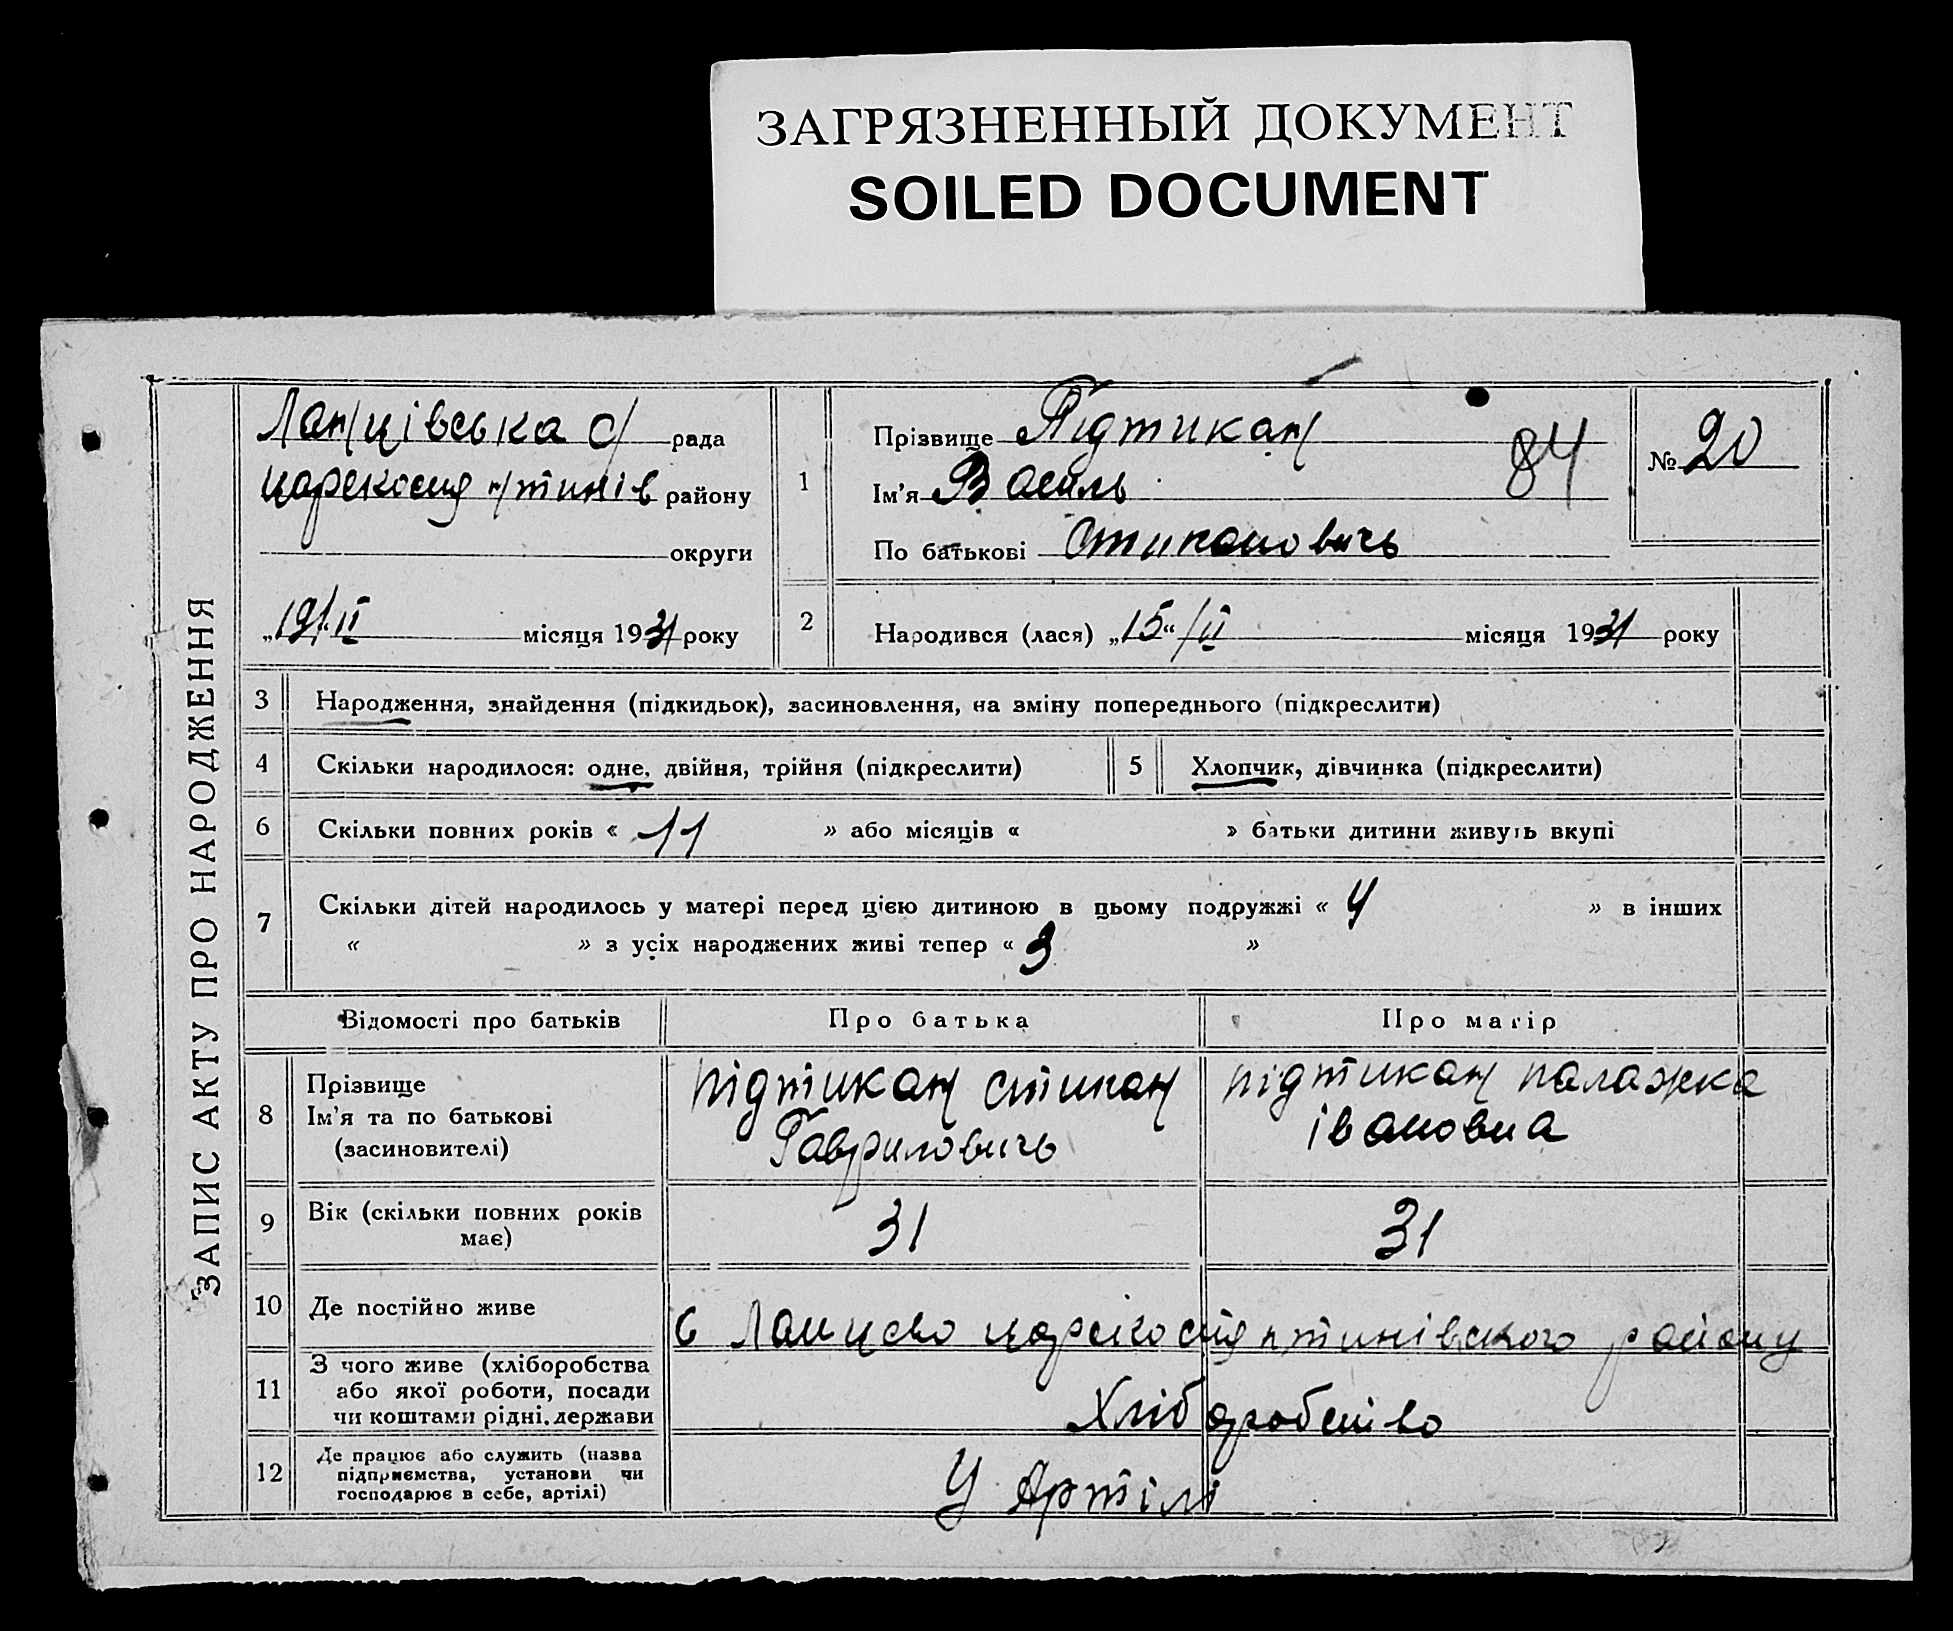 ЗАГРЯЗНЕННЫЙ ДОКУМЕНТ
SOILED DOCUMENT
ЗАПИС АКТУ ПРО НАРОДЖЕННЯ
Ланцівська с/ рада
району
округи
„19/II“ місяця 1931 року
1
Прізвище Підтикан
84
Ім'я Василь
По батькові Стипановичь
№ 20
2
Народився (лася) „15“/II місяця 1931 року
3 Народження, знайдення (підкидьок), засиновлення, на зміну попереднього (підкреслити)
4 Скільки народилося: одне, двійня, трійня (підкреслити)
5 Хлопчик, дівчинка (підкреслити)
6 Скільки повних років « 11 » або місяців « » батьки дитини живуть вкупі
7 Скільки дітей народилось у матері перед цією дитиною в цьому подружжі « 4 » в інших
« » з усіх народжених живі тепер « 3 »
Відомості про батьків
Про батька
Про матір
8 Прізвище
Ім'я та по батькові
(засиновителі)
підтикан стипан
Гавриловичь
підтикан палажка
івановна
9 Вік (скільки повних років
має)
31
31
10 Де постійно живе
с району
11 З чого живе (хліборобства
або якої роботи, посади
чи коштами рідні, держави
Хліборобство
12 Де працює або служить (назва
підприємства, установи чи
господарює в себе, артілі)
У Артілі